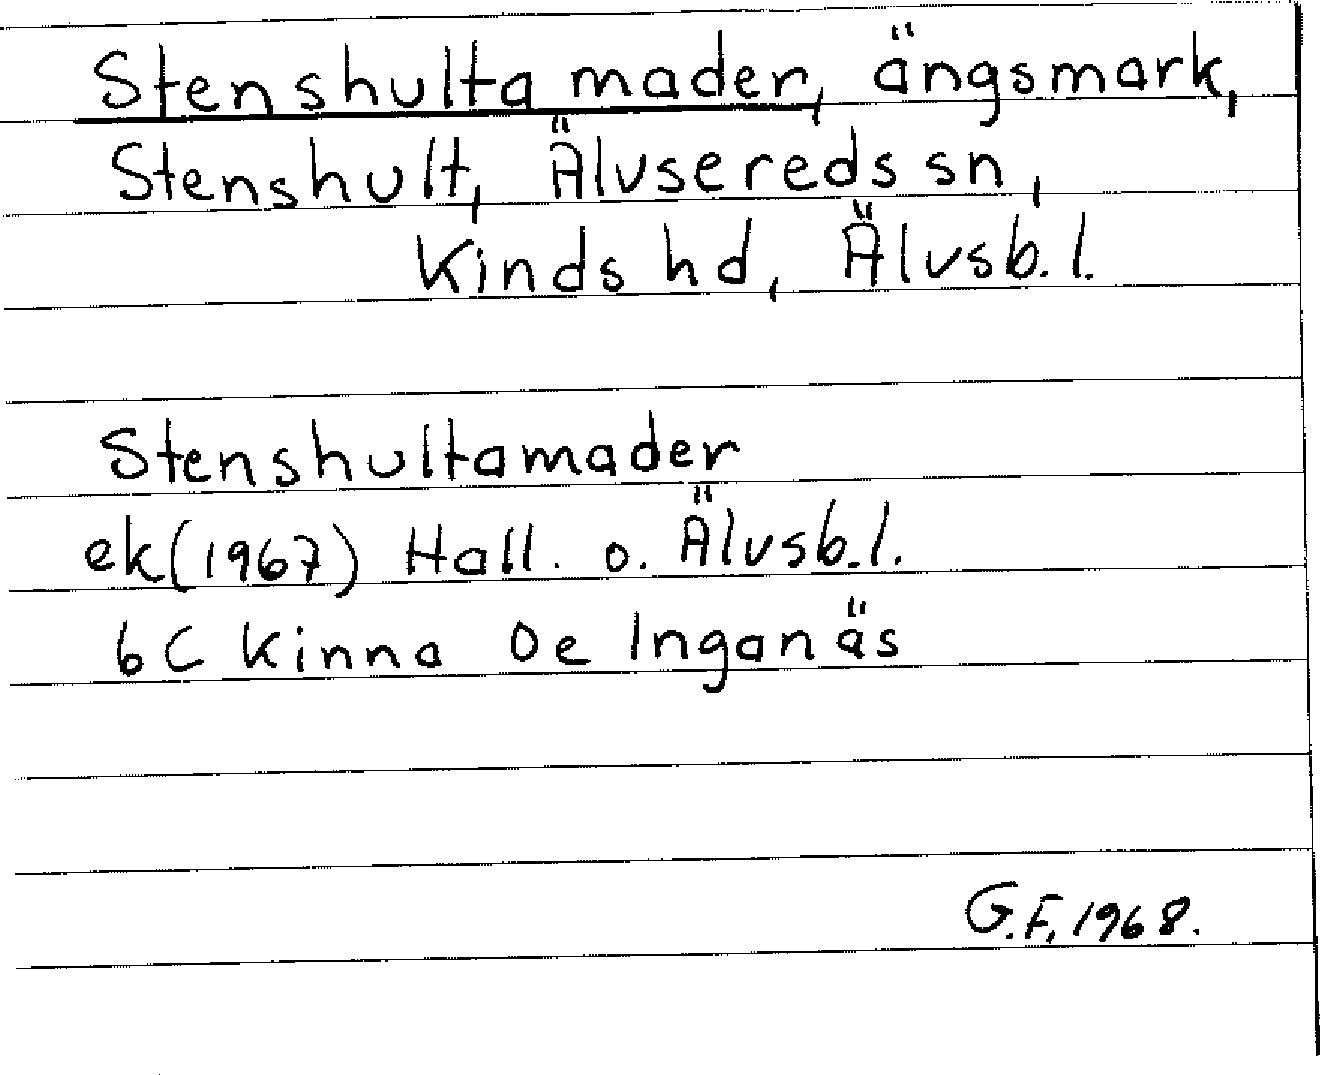 Stenshulta mader, ängsmark,
Stenshult, Älvsereds sn,
Kinds hd, Älvsb. l.
Stenshultamader
ek(1967) Hall. o. Älvsb. l.
6C Kinna 0e Inganäs
G.F, 1968.